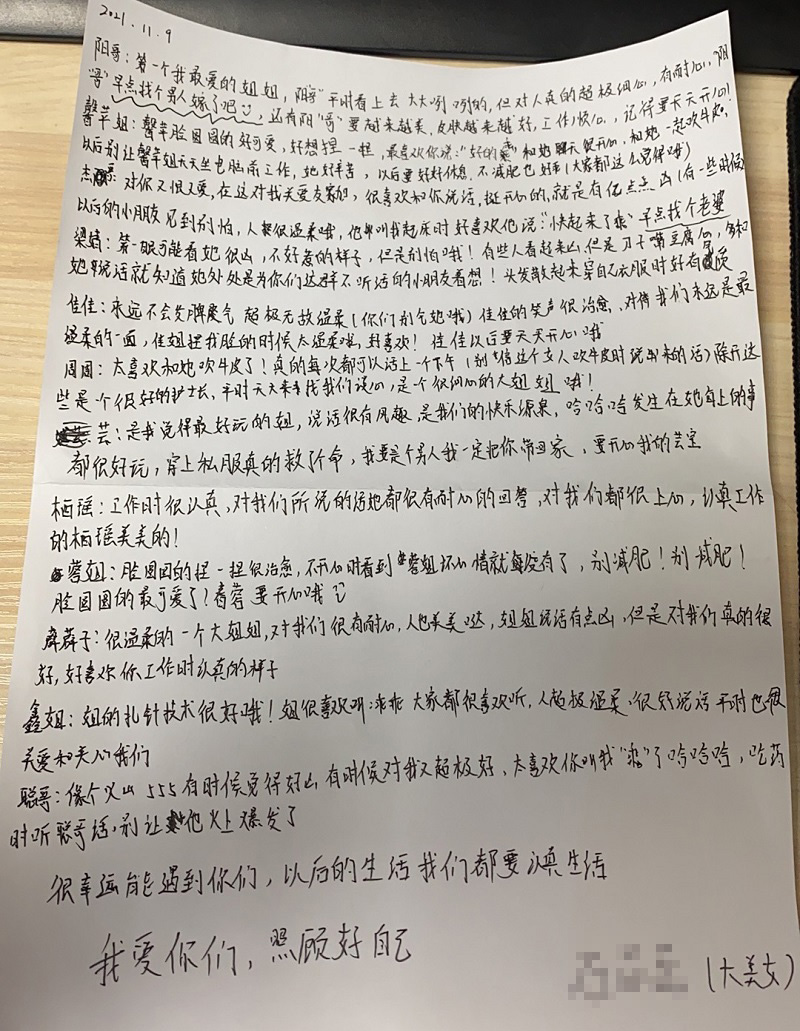 2021.11.9
阳哥：第一个我最爱的姐姐，阳"哥"平时看上去大大咧咧的，但对人真的超极细心，有耐心，"阳
哥"早点找个男人嫁了吧，还有阳"哥"要越来越美，皮肤越来越好，工作顺心，记得要天天开心！
馨苹姐：馨苹脸圆圆的好可爱，好想捏一捏，最喜欢你说："好的"和她聊天很开心，和她一起吹牛皮，
以后别让馨苹姐天天坐电脑前工作，她好辛苦，以后要好好休息，不减肥也好看（大家都这么觉得哦）
杰：对你又恨又爱，在这对我关爱友加，很喜欢和你说话，挺开心的，就是有亿点点凶（有一些时候）
以后的小朋友见到别怕，人很温柔哦，他早叫我起床时好喜欢他说："快起来了"早点找个老婆
梁婧：第一眼可能看她很凶，不好惹的样子，但是别怕哦！有些人看起来凶但是刀子嘴豆腐心，多和
她说话就知道她处处是为你们这群不听话的小朋友着想！头发散起来穿自己衣服时好有气质
佳佳：永远不会发脾气 超极无敌温柔（你们别气她哦）佳佳的笑声很治愈，对待我们永远是最
温柔的一面，佳姐捏我脸的时候太温柔啦，好喜欢！佳佳以后要天天开心哦
周周：太喜欢和她吹牛皮了！真的每次都可以活上一个下午（别信这个女人吹牛皮时说出来的话）除开这
些是个很好的护士长，平时天天来找我们谈心，是个很细心的大姐姐哦！
芸：是我觉得最好玩的姐，说话很有风趣，是我们的快乐源泉，哈哈哈发生在她身上的事
都很好玩，穿上私服真的救了个命，我要是个男人我一定把你带回家，要开心我的芸宝
栖瑶：工作时很认真，对我们所说的话她都很有耐心的回答，对我们都很上心，认真工作
的栖瑶美美的！
蓉姐：脸圆圆的捏一捏很治愈，不开心时看到蓉姐坏心情就每没有了，别减肥！别减肥！
脸圆圆的最可爱了！春蓉要开心哦
薜子：很温柔的一个大姐姐，对我们很有耐心，人也美美哒，姐姐说话有点凶，但是对我们真的很
好，好喜欢你工作时认真的样子
鑫姐：姐的扎针技术很好哦！姐很喜欢叫：乖乖 大家都很喜欢听，人超极温柔，很好说话平时也很
关爱和关心我们
聪哥：像个火山 555 有时候觉得好凶 有时候对我又超极好，太喜欢你叫我""了哈哈哈，吃药
时听聪哥话，别让他火上爆发了
很幸运能遇到你们，以后的生活我们都要认真生活
我爱你们，照顾好自己
（大美女）